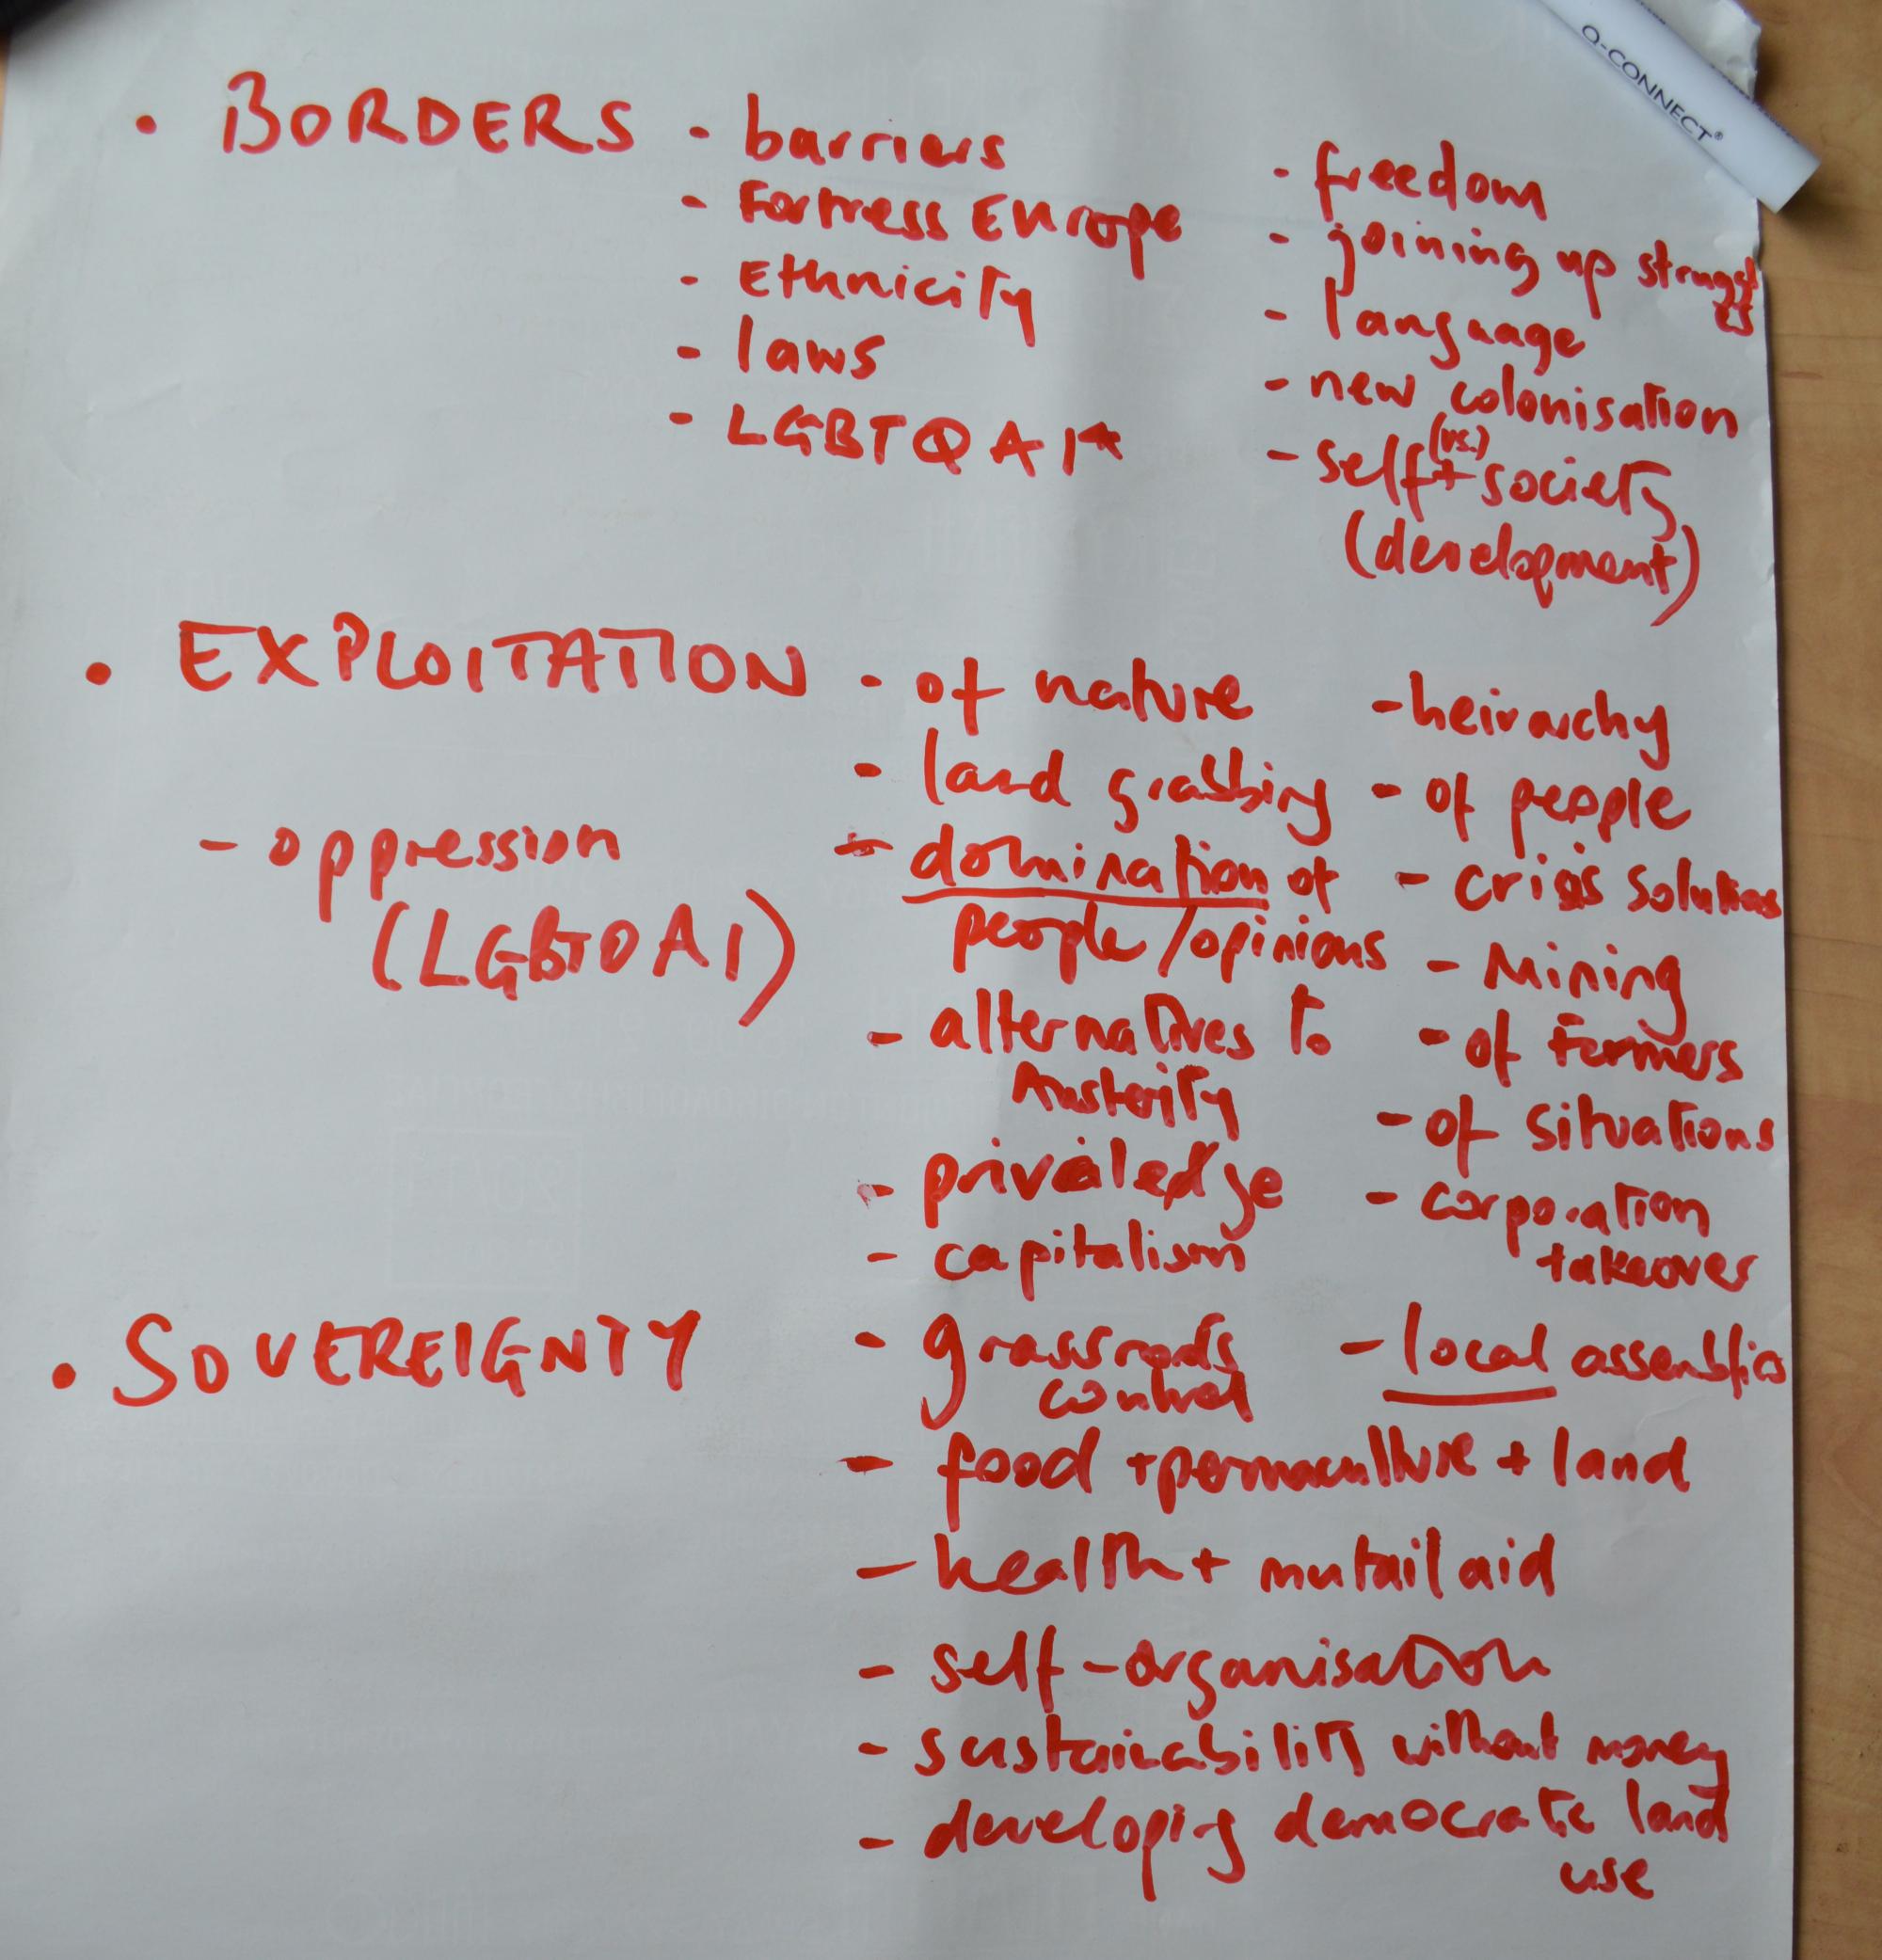 Q-CONNECT®
• BORDERS
- barriers
- Fortress Europe
- Ethnicity
- laws
- LGBTQAI*
- freedom
- joining up struggl
es
- language
- new colonisation
- self + (vs.) society
(development)
• EXPLOITATION
- oppression
(LGBTQAI)
- of nature
- land grabbing
- domination of
people/opinions
- alternatives to
Austerity
- priviledge
- capitalism
- heirarchy
- of people
- crisis solutions
- Mining
- of Farmers
- of situations
- corporation
takeover
• SOVEREIGNTY
- grassroots
control
- local assemblies
- food + permaculture + land
- health + mutail aid
- self-organisation
- sustainability without money
- developing democratic land
use